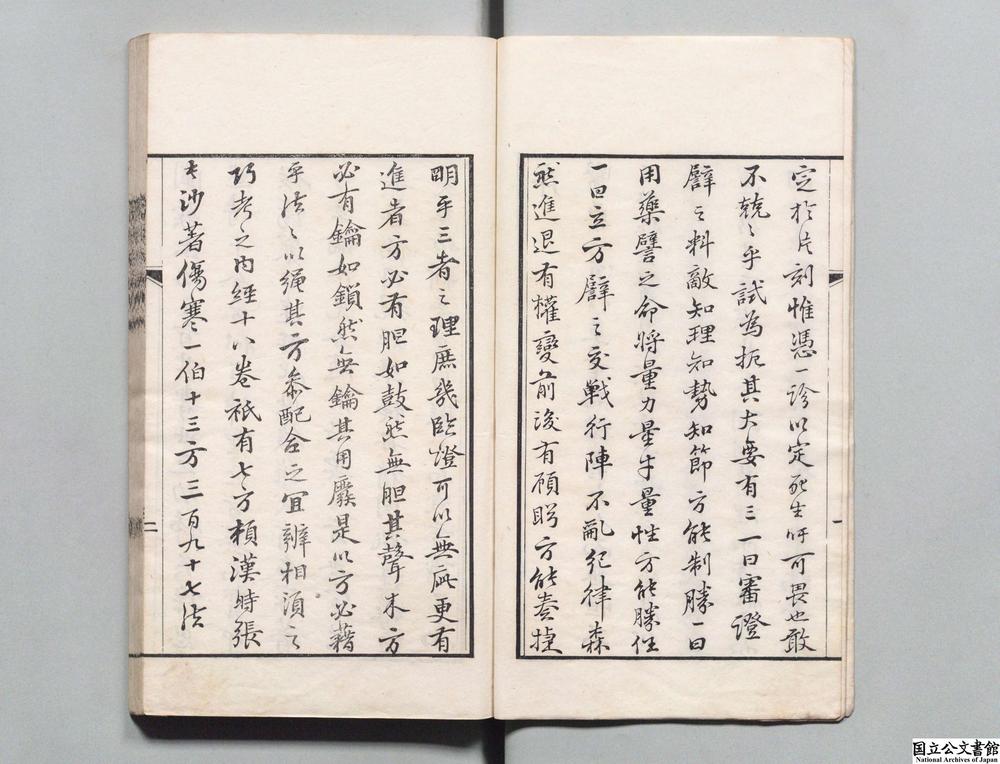 定於片刻惟憑一診以定死生吁可畏也敢
不兢〻乎試為扼其大要有三一曰審證
譬之料敵知理知勢知節方能制勝一曰
用藥譬之命將量力量才量性方能勝任
一曰立方譬之交戰行陣不亂紀律森
然進退有權變前後有顧盼方能奏捷
一
明乎三者之理庶幾臨證可以無疵更有
進者方必有胆如鼓然無胆其聲木方
必有鑰如鎖然無鑰其用廢是以方必藉
乎法〻以繩其方叅配合之宜辨相須之
巧考之內經十八卷祇有七方賴漢時張
長沙著傷寒一伯十三方三百九十七法
二
国立公文書館
National Archives of Japan